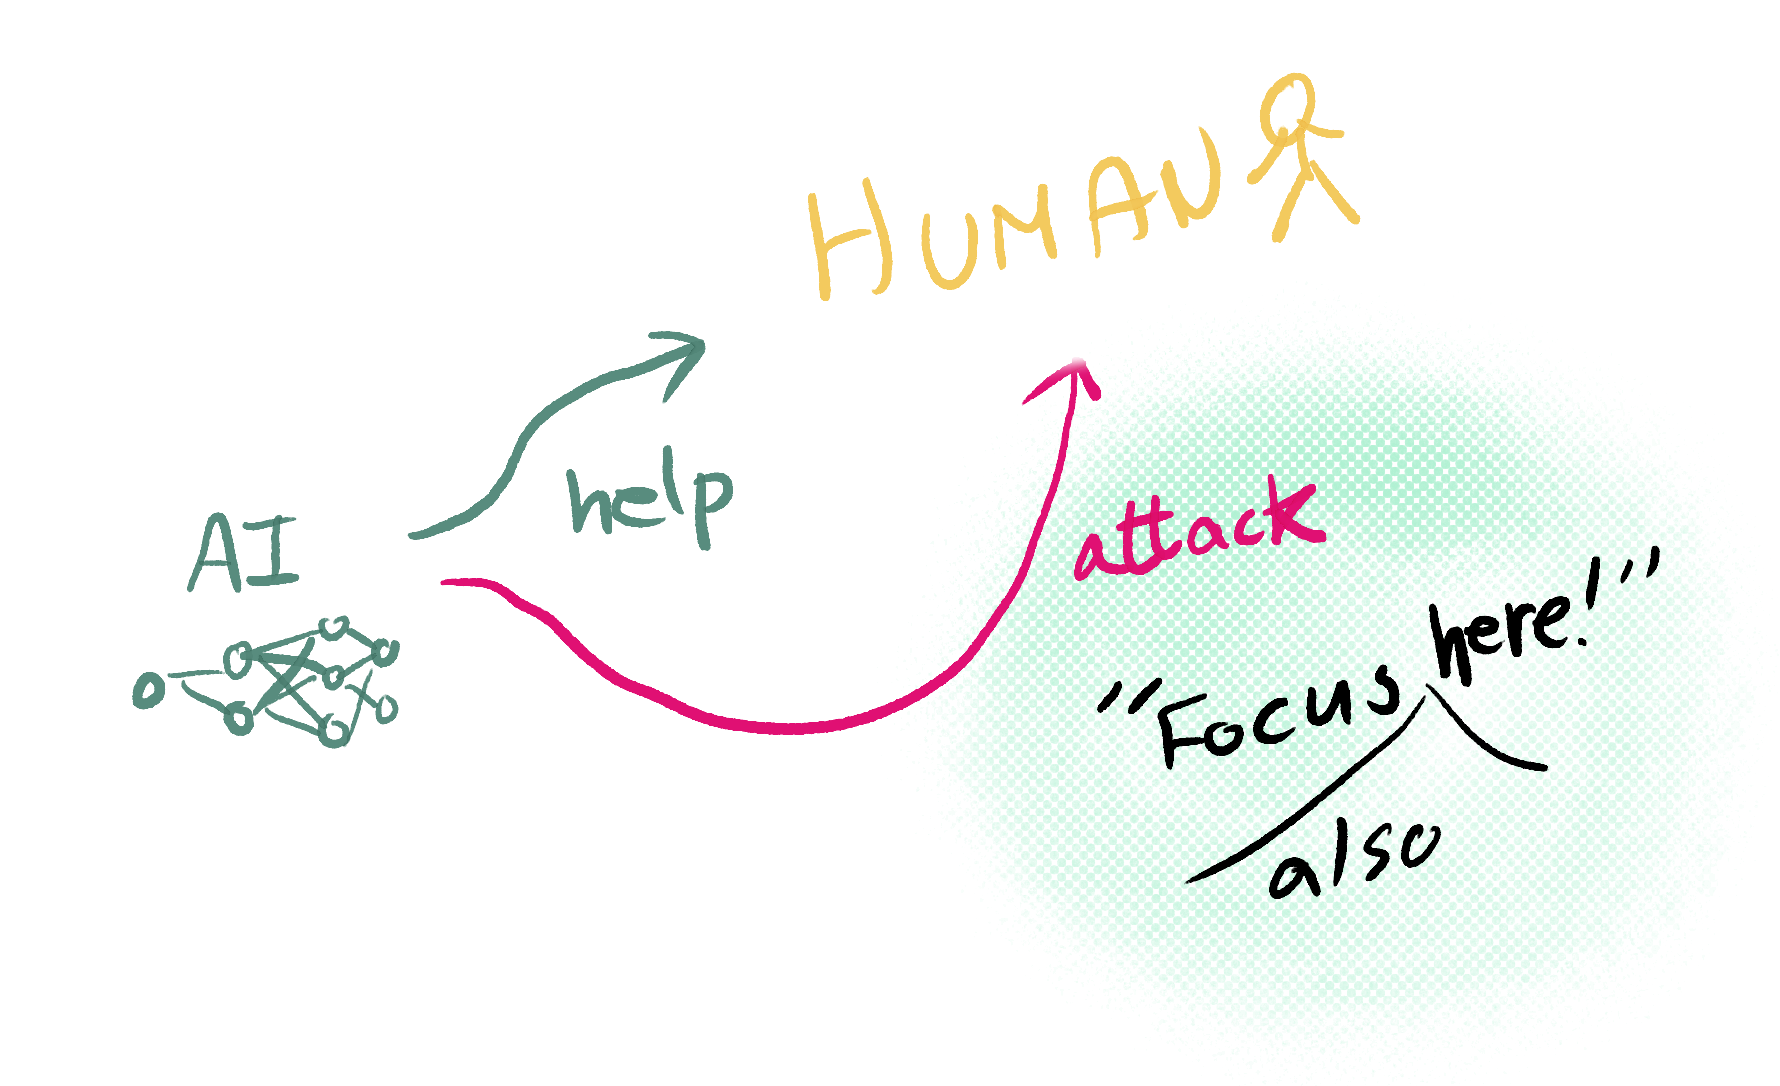 HUMAN
help
AI
attack
"Focus here!"
also